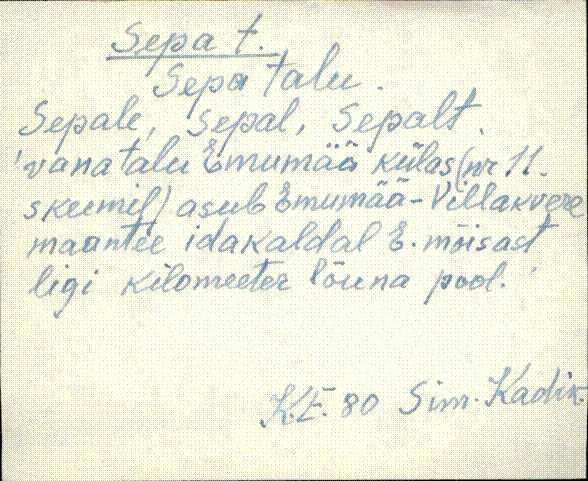 Sepa t.
Sepa talu.
Sepale, Sepal, Sepalt.
'vana talu Emumää külas (nr 11.
skeemil) asub Emumää-Villakvere
maantee idakaldal E. mõisast
ligi kilomeeter lõuna pool.'
K.E. 80 Sim. Kadik.